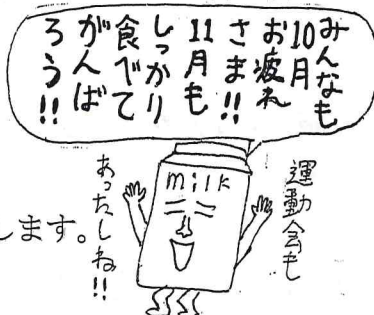 みんなも
10月
お疲れ
さま!!
11月も
しっかり
食べて
がんば
ろう!!
運動会も
あったしね!!
milk
します。